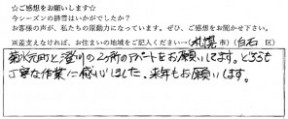 ☆ご感想をお願いします☆
今シーズンの排雪はいかがでしたか？
お客様の声が、私たちの原動力になっています。ぜひ、ご感想をお聞かせ下さい。
※差支えなければ、お住まいの地域をご記入ください→(札幌 市)(白石 区)
菊水元町と澄川の2ヶ所のアパートをお願いしてます。どちらも
丁寧な作業に感謝しました。来年もお願いします。